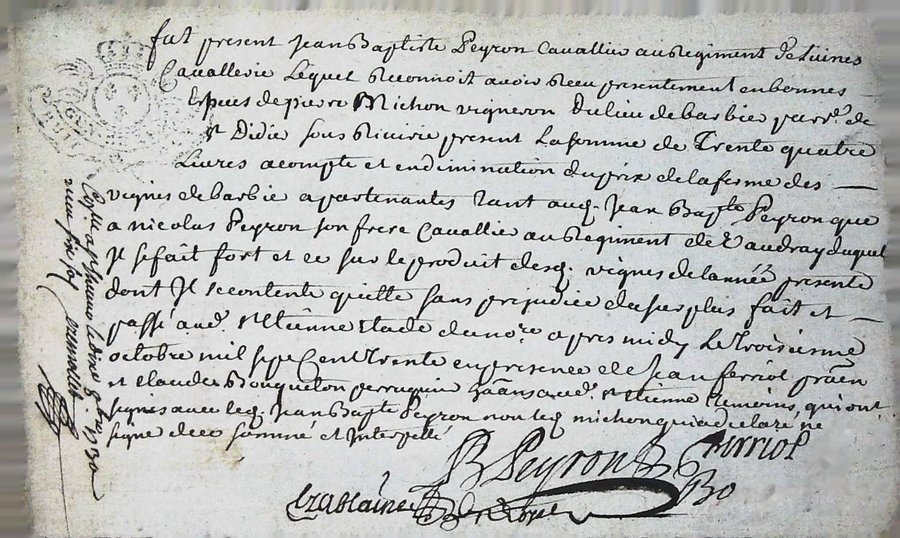 fut present Jean Baptiste Peyron Cavallier au Regiment de Luines
Cavallerie Lequel Reconnoit avoir Receu presentement en bonnes
Especes de pierre Michon vigneron du lieu de barbie parr.e de
St Didie sous Riverie present La somme de Trente quatre
Livres acompte et en diminution du prix de la ferme des
vignes de barbie apartenantes tant aud. Jean Bapte Peyron que
a nicolas Peyron son frere Cavallier au Regiment de Vaudray duquel
Il se fait fort et ce sur le produit desd. vignes de l'année presente
dont Il se contente quitte sans prejudice du surplus fait et
passé aud. St Etienne Etude du no.re apres midy Le Troisieme
octobre mil sept Cent Trente en presence de Jean ferriol praen
et Claude perruquier aud. St Etienne temoins, qui ont
signés avec led. Jean Bapte Peyron non led. michon qui a declaré ne
signe de ce sommé et Interpellé
JB Peyron ferriol